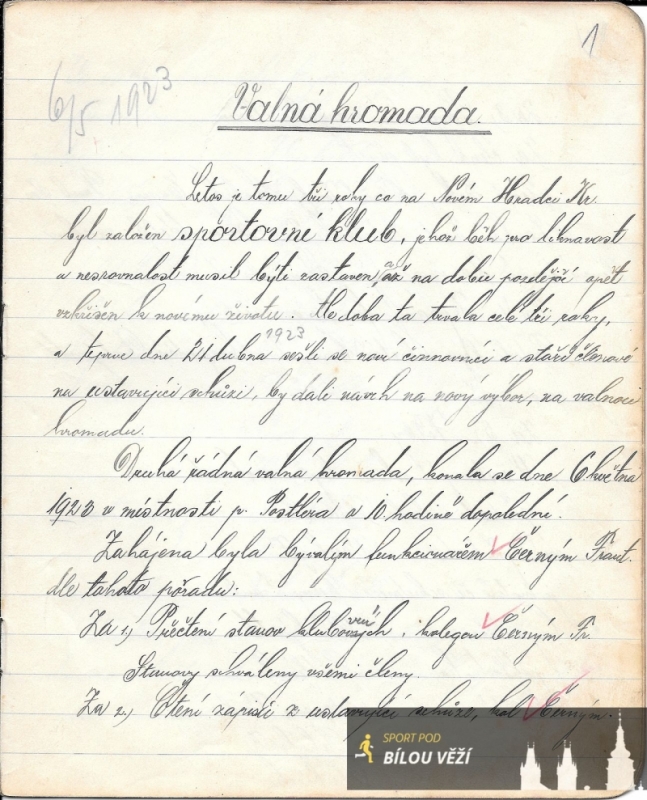 1
6/5 1923
Valná hromada.
Letos je tomu tři roky co na Novém Hradci Kr.
byl založen sportovní klub, jehož běh pro liknavost
a nesrovnalost musil býti zastaven, a až na dobu pozdější opět
vzkříšen k novému životu. Ale doba ta trvala celé tři roky,
1923
a teprve dne 21 dubna sešli se noví činovníci a staří členové
na ustavující schůzi, by dali návrh na nový výbor, na valnou
hromadu.
Druhá řádná valná hromada, konala se dne 6 května
1923 v místnosti p. Postlera o 10 hodině dopolední.
Zahájena byla bývalím funkcionářem Černým Frant.
dle tohoto pořadu:
Za 1.) Přečtení stanov klubových, kolegou Černým Fr.
Stanovy schváleny všemi členy.
Za 2.) Čtení zápisu z ustavující schůze, kol Černým.
SPORT POD
BÍLOU VĚŽÍ